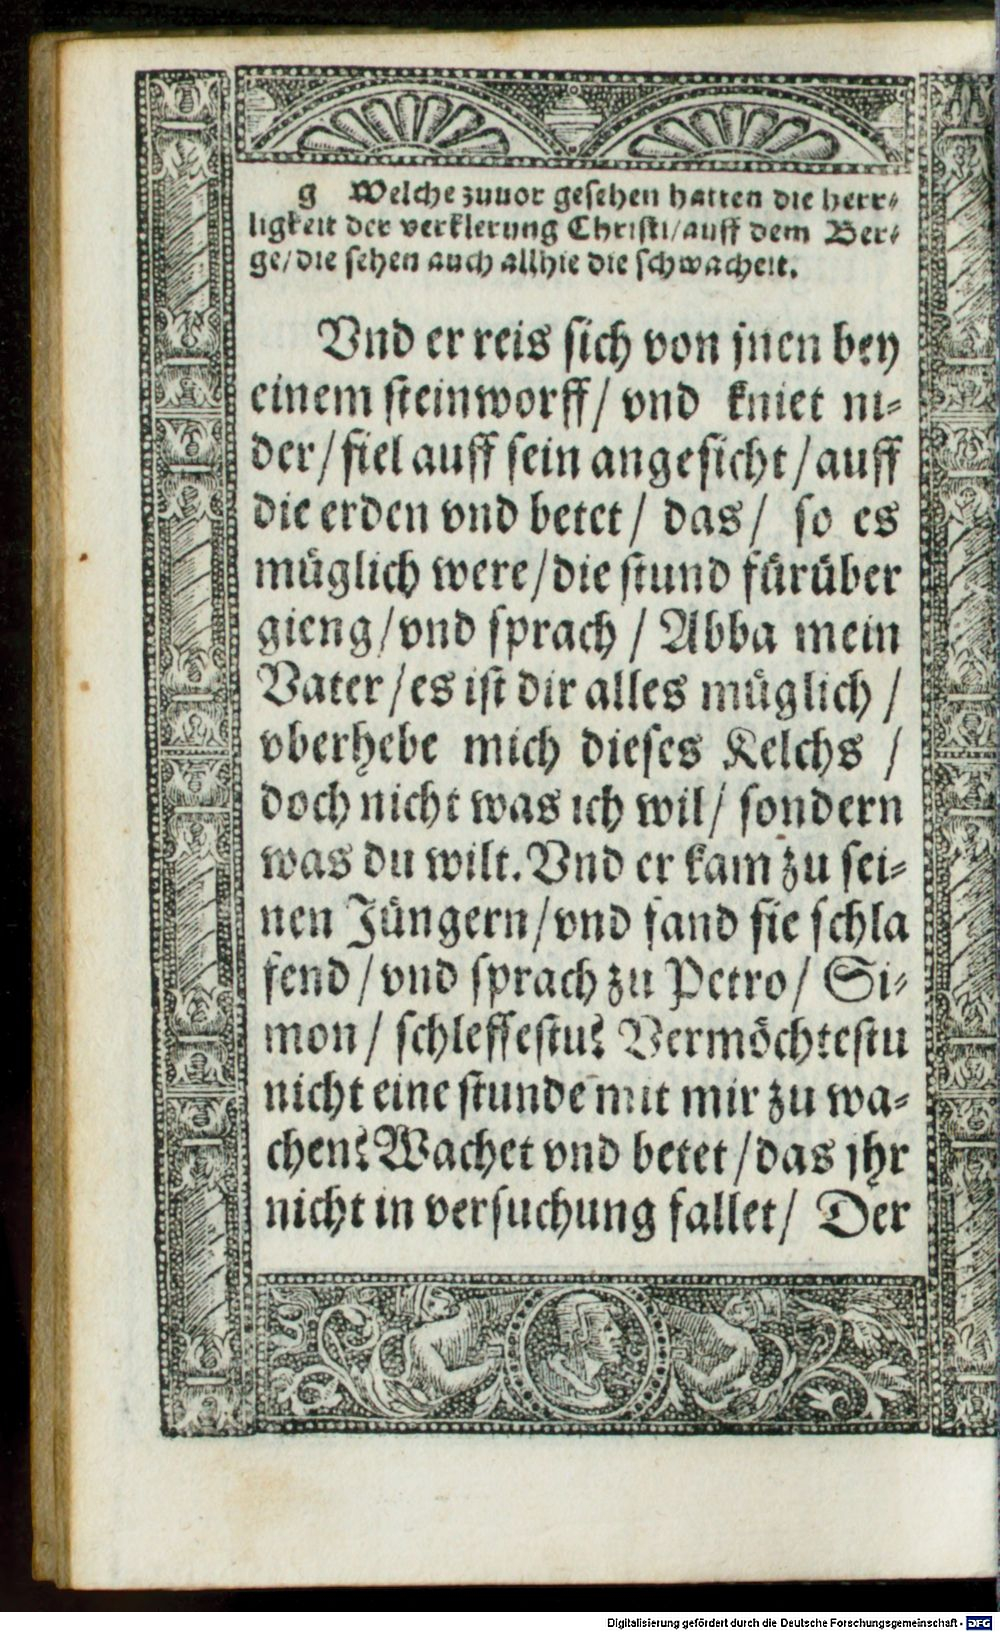 g Welche zuuor gesehen hatten die herr-
ligkeit der verklerung Christi/auff dem Ber-
ge/die sehen auch allhie die schwacheit.
Vnd er reis sich von jnen bey
einem steinworff/ vnd kniet ni-
der/fiel auff sein angesicht/auff
die erden vnd betet/ das/ so es
müglich were/die stund fürüber
gieng/vnd sprach / Abba mein
Vater/es ist dir alles müglich /
vberhebe mich dieses Kelchs /
doch nicht was ich wil/ sondern
was du wilt. Vnd er kam zu sei-
nen Jüngern/vnd fand sie schla
fend/vnd sprach zu Petro/ Si-
mon/ schleffestu? Vermöchtestu
nicht eine stunde mit mir zu wa-
chen? Wachet vnd betet/das jhr
nicht in versuchung fallet/ Der
Digitalisierung gefördert durch die Deutsche Forschungsgemeinschaft - DFG